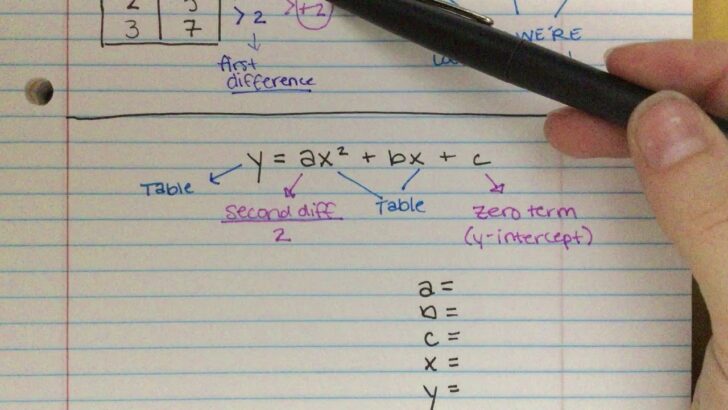 2 5
> 2
> +2
3 7
WE'RE
first
difference
y = ax² + bx + c
Table
Table
second diff
2
zero term
(y-intercept)
a =
b =
c =
x =
y =